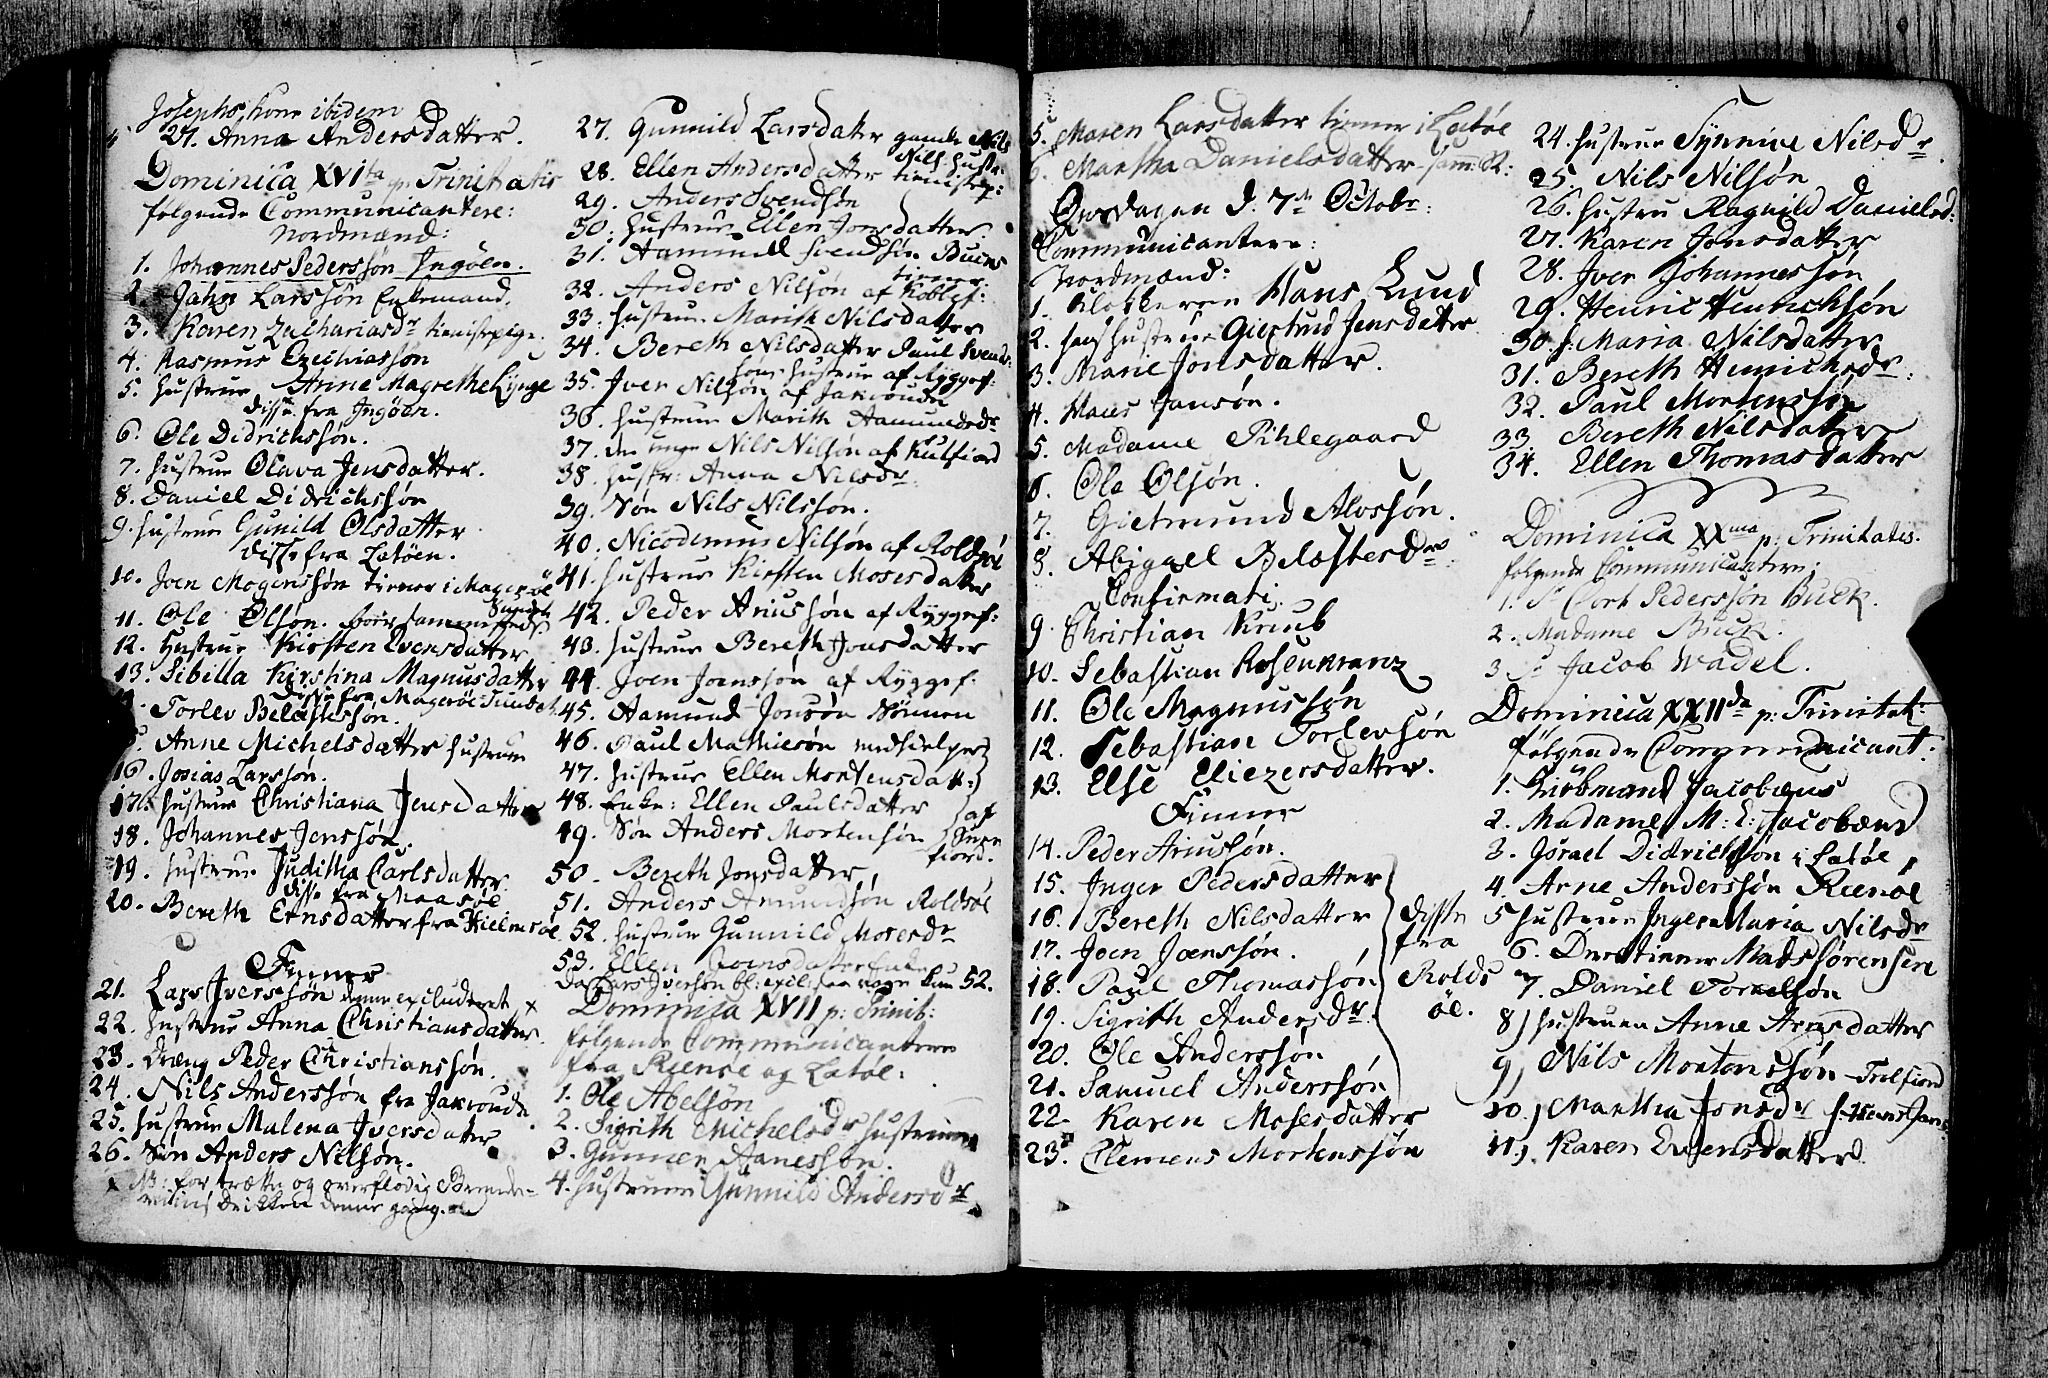 Josephs kone ibidem
27. Anna Andersdatter.
Dominica XVI ta p: Trinitatis
følgende Communicantere:
Nordmænd:
1. Johannes Pederssøn Ingøen.
2. Jahn Larssøn Enkemand.
3. Karen Zachariasdr tienistepige.
4. Rasmus Ezechiassøn
5. Hustrue Anne Magrethe Lynge
disse fra Ingöen.
6. Ole Didrichssøn.
7. Hustrue Olava Jensdatter.
8. Daniel Didrichssøn
9. Hustrue Gunild Olsdatter
disse fra Latöen.
10. Joen Mogenssøn tiener i Magerøe
Sundet
11. Ole Olsøn.
12. Hustrue Kirsten Evensdatter
13. Sibilla Kirstina Magnusdatter
disse fra Magerøe Sundet
Torlev Belastessøn.
Anne Michelsdatter Hustrue
16. Josias Larssøn.
17. Hustrue Christiana Jensdatter
18. Johannes Jenssøn.
19. Hustrue Juditha Carlsdatter
disse fra Maasøe
20. Bereth Ernsdatter fra Hielmsøe
Finner
21. Lars Iverssøn denne excluderet x
22. Hustrue Anna Christiansdatter.
23. Dræng Peder Christianssøn.
24. Nils Anderssøn fra Jakroude
25. Hustrue Malena Iversdatter
26. Søn Anders Nilsøn.
x NB: for trætte og overflødig Brende-
viins Drikken denne gang
27. Gunnild Larsdatter gamle Nils
Nils: Hustr:
28. Ellen Andersdatter tienistep:
29. Anders Svendsøn
30. Hustrue Ellen Jonsdatter
31. Aamund Svendsøn Buens
tiener.
32. Anders Nilsøn af Koblef:
33. Hustrue Marith Nilsdatter
34. Bereth Nilsdatter Paul Svends:
hans Hustrue af Ryggef:
35. Iver Nilsøn af Jakroude
36. Hustrue Marith Aamundsdr
37. den unge Nils Nilsøn af Kulfiord
38. Hustr: Anna Nilsdr.
39. Søn Nils Nilssøn.
40. Nicodemus Nilsøn af Roldsøe
41. Hustrue Kirsten Mosesdatter
42. Peder Ariussøn af Ryggef:
43. Hustrue Bereth Jonsdatter
44. Joen Joenssøn af Ryggef:
45. Aamund Jonsøn Sønnen
46. Paul Mathiesøn medhielper
47. Hustrue Ellen Mortensdatt:
48. Enke: Ellen Paulsdatter
49. Søn Anders Mortensøn
af
Snee
fiord.
50. Bereth Jonsdatter,
51. Anders Amundsøn Roldsøe
52. Hustrue Gunnild Mosesdr
53. Ellen Joensdatter Enke
Da Lars Iversøn bl: excl: saa var kun 52.
Dominica XVII p: Trinit:
følgende Communicantere
fra Reenøe og Latøe:
1. Ole Abelsøn
2. Sigrith Michelsdr Hustrue
3. Gunner Aanessøn.
4. Hustrue Gunnild Andersdr
5. Maren Larsdatter tiener i Latøe
6. Martha Danielsdatter
Onsdagen d. 7de Octobr:
Communicantere:
Nordmænd:
1. Klokkeren Hans Lund
2. hans Hustrue Giertrud Jensdatter
3. Marie Jonsdatter.
4. Hans Jansøn.
5. Madame Pihlegaard
6. Ole Olsøn.
7. Gietmund Alvssøn.
8. Abigael Belastersdr
Confirmati.
9. Christian Kruub
10. Sebastian Rosenkranz
11. Ole Magnussøn
12. Sebastian Torlevsøn
13. Else Eliezersdatter.
Finner
14. Peder Ariussøn.
15. Inger Pedersdatter
16. Bereth Nilsdatter
17. Joen Joenssøn.
18. Paul Thomassøn
disse
fra
Rolds
øe.
19. Sigrith Andersdr.
20. Ole Anderssøn
21. Samuel Anderssøn
22. Karen Mosesdatter
23. Clemens Mortenssøn
24. Hustrue Synnive Nilsdr
25. Nils Nilsøn
26. Hustru Ragnild Danielsd:
27. Karen Jonsdatter
28. Iver Johannessøn
29. Henric Henrichsøn
30. H: Maria Nilsdatter
31. Bereth Henrichsdr.
32. Paul Mortenssøn
33. Bereth Nilsdatter
34. Ellen Thomasdatter
Dominica XX ma p: Trinitatis.
følgende Communicantere:
1. Sr Cort Pederssøn Buck.
2. Madame Buck.
3. Sr Jacob Wadel.
Dominica XXII da p: Trinitat:
følgende Communicant:
1. Kiøbmand Jacobæus
2. Madame M: E: Jacobæus
3. Israel Didrichsøn i Latøe
4. Arne Anderssøn Reenøe
5 Hustrue Inger Maria Nilsdr
6. Dreng tiener Mads Sørensen
7. Daniel Torkelsøn
8) Hustruen Anne Arnsdatter
9) Nils Mortenssøn Trolfiord
10.) Martha Jonsdr
11). Karen Evensdatter